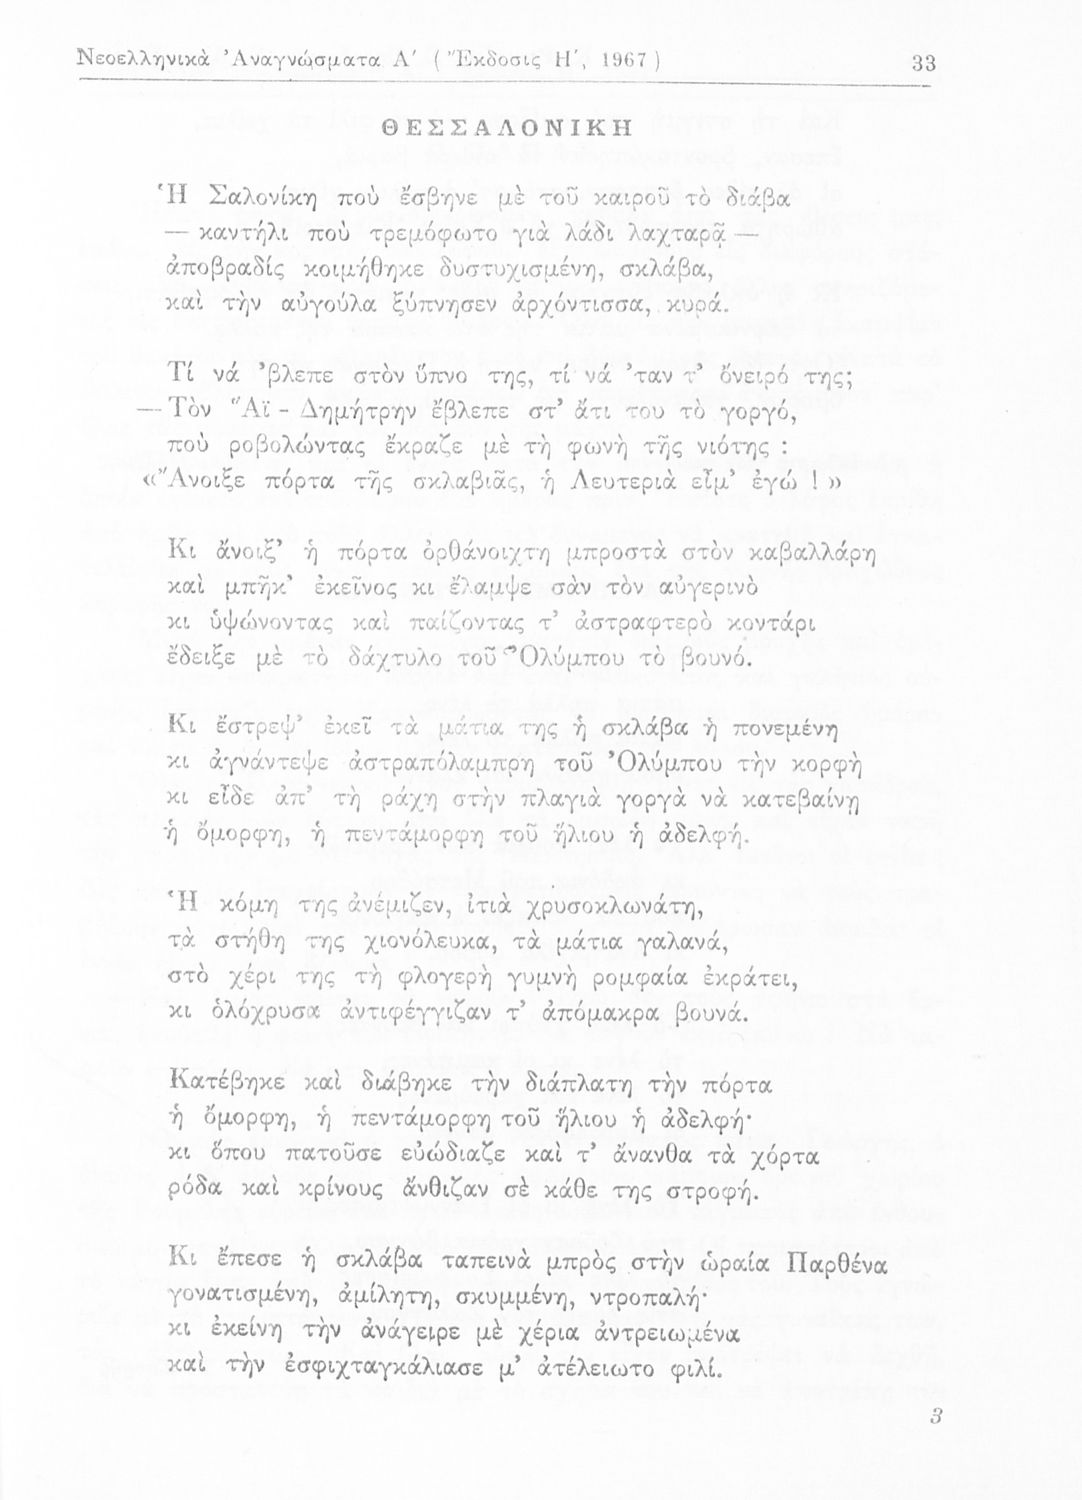 Νεοελληνικὰ Ἀναγνώσματα Α′ ( Ἔκδοσις Η′, 1967 ) 33
ΘΕΣΣΑΛΟΝΙΚΗ
Ἡ Σαλονίκη ποὺ ἔσβηνε μὲ τοῦ καιροῦ τὸ διάβα
— καντήλι ποὺ τρεμόφωτο γιὰ λάδι λαχταρᾷ —
ἀποβραδίς κοιμήθηκε δυστυχισμένη, σκλάβα,
καὶ τὴν αὐγούλα ξύπνησεν ἀρχόντισσα, κυρά.
Τί νά ’βλεπε στὸν ὕπνο της, τί νά ’ταν τ’ ὄνειρό της;
— Τὸν Ἅϊ - Δημήτρην ἔβλεπε στ’ ἄτι του τὸ γοργό,
ποὺ ροβολώντας ἔκραζε μὲ τὴ φωνὴ τῆς νιότης :
«Ἄνοιξε πόρτα τῆς σκλαβιᾶς, ἡ Λευτεριὰ εἶμ’ ἐγώ ! »
Κι ἄνοιξ’ ἡ πόρτα ὀρθάνοιχτη μπροστὰ στὸν καβαλλάρη
καὶ μπῆκ’ ἐκεῖνος κι ἔλαμψε σὰν τὸν αὐγερινὸ
κι ὑψώνοντας καὶ παίζοντας τ’ ἀστραφτερὸ κοντάρι
ἔδειξε μὲ τὸ δάχτυλο τοῦ Ὀλύμπου τὸ βουνό.
Κι ἔστρεψ’ ἐκεῖ τὰ μάτια της ἡ σκλάβα ἡ πονεμένη
κι ἀγνάντεψε ἀστραπόλαμπρη τοῦ Ὀλύμπου τὴν κορφὴ
κι εἶδε ἀπ’ τὴ ράχη στὴν πλαγιὰ γοργὰ νὰ κατεβαίνῃ
ἡ ὄμορφη, ἡ πεντάμορφη τοῦ ἥλιου ἡ ἀδελφή.
Ἡ κόμη της ἀνέμιζεν, ἰτιὰ χρυσοκλωνάτη,
τὰ στήθη της χιονόλευκα, τὰ μάτια γαλανά,
στὸ χέρι της τὴ φλογερὴ γυμνὴ ρομφαία ἐκράτει,
κι ὁλόχρυσα ἀντιφέγγιζαν τ’ ἀπόμακρα βουνά.
Κατέβηκε καὶ διάβηκε τὴν διάπλατη τὴν πόρτα
ἡ ὄμορφη, ἡ πεντάμορφη τοῦ ἥλιου ἡ ἀδελφή·
κι ὅπου πατοῦσε εὐώδιαζε καὶ τ’ ἄνανθα τὰ χόρτα
ρόδα καὶ κρίνους ἄνθιζαν σὲ κάθε της στροφή.
Κι ἔπεσε ἡ σκλάβα ταπεινὰ μπρὸς στὴν ὡραία Παρθένα
γονατισμένη, ἀμίλητη, σκυμμένη, ντροπαλή·
κι ἐκείνη τὴν ἀνάγειρε μὲ χέρια ἀντρειωμένα
καὶ τὴν ἐσφιχταγκάλιασε μ’ ἀτέλειωτο φιλί.
3